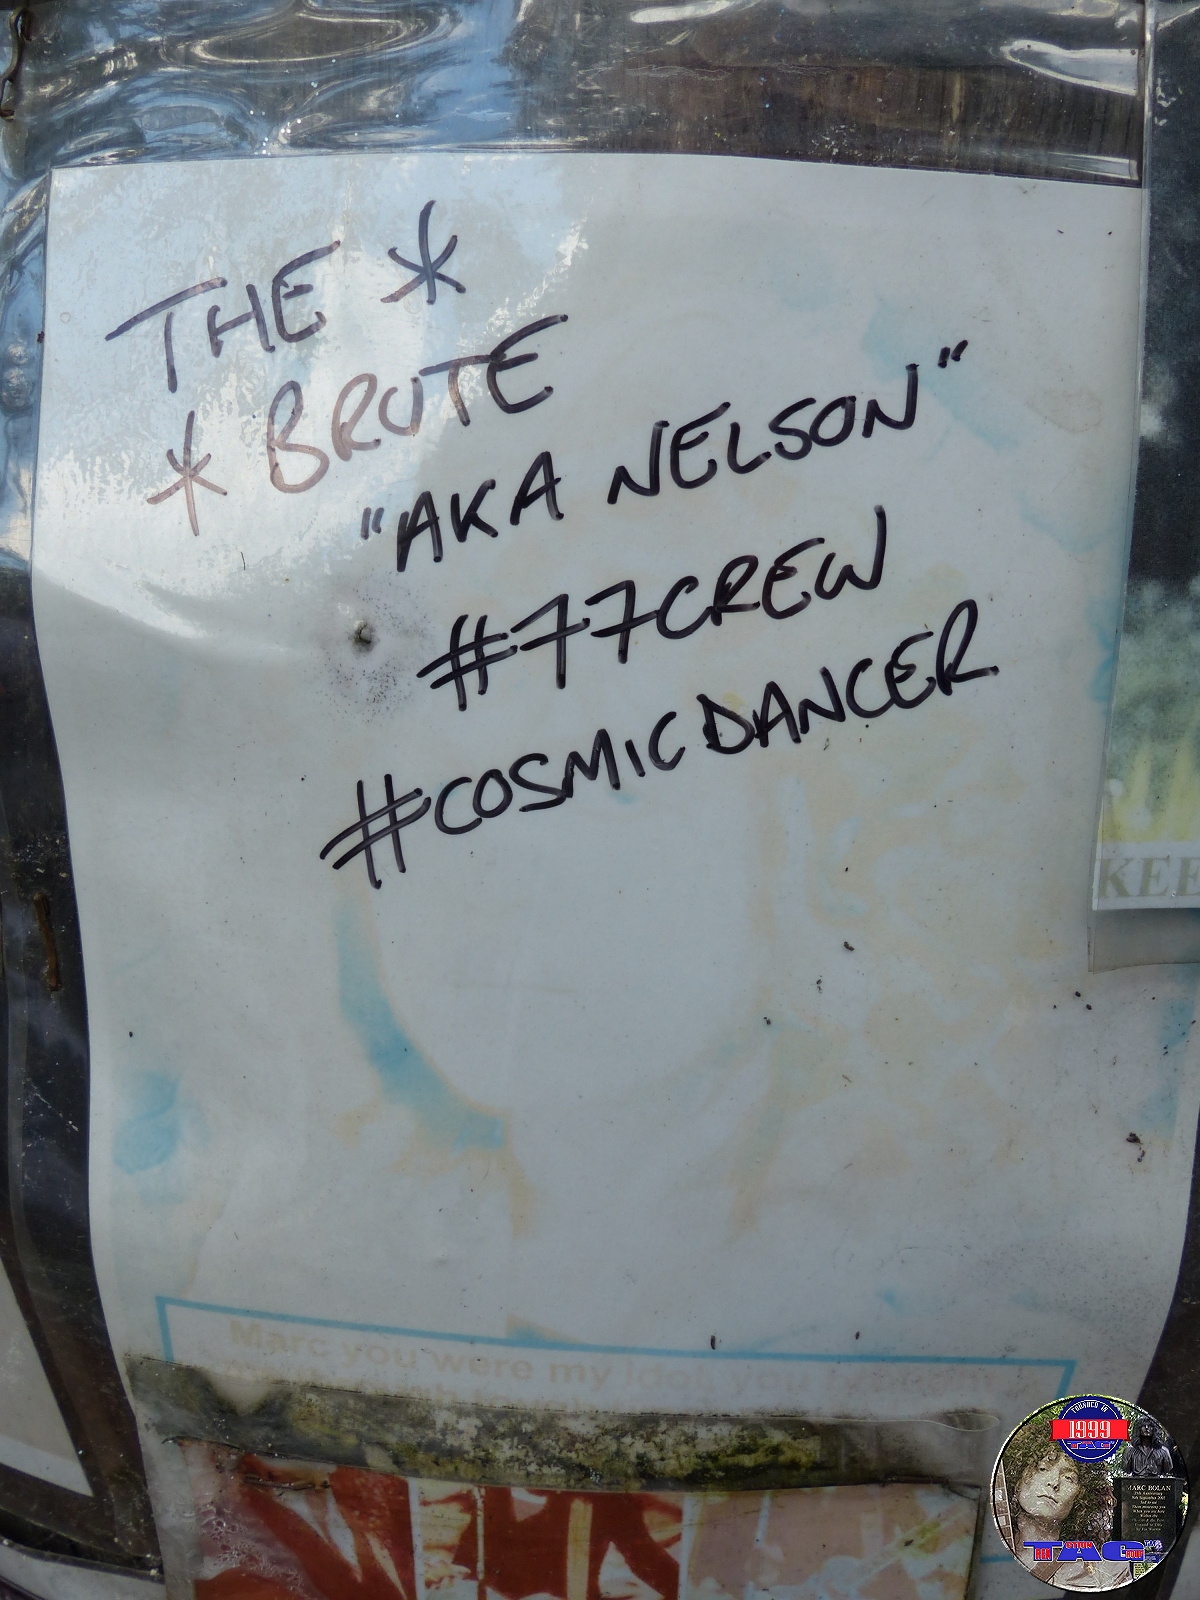 THE *
* BROTE
"AKA NELSON"
#77CREW
#COSMICDANCER
KEE
Marc you were my idol, you
FOUNDED IN
1999
TAG
MARC BOLAN
TAG